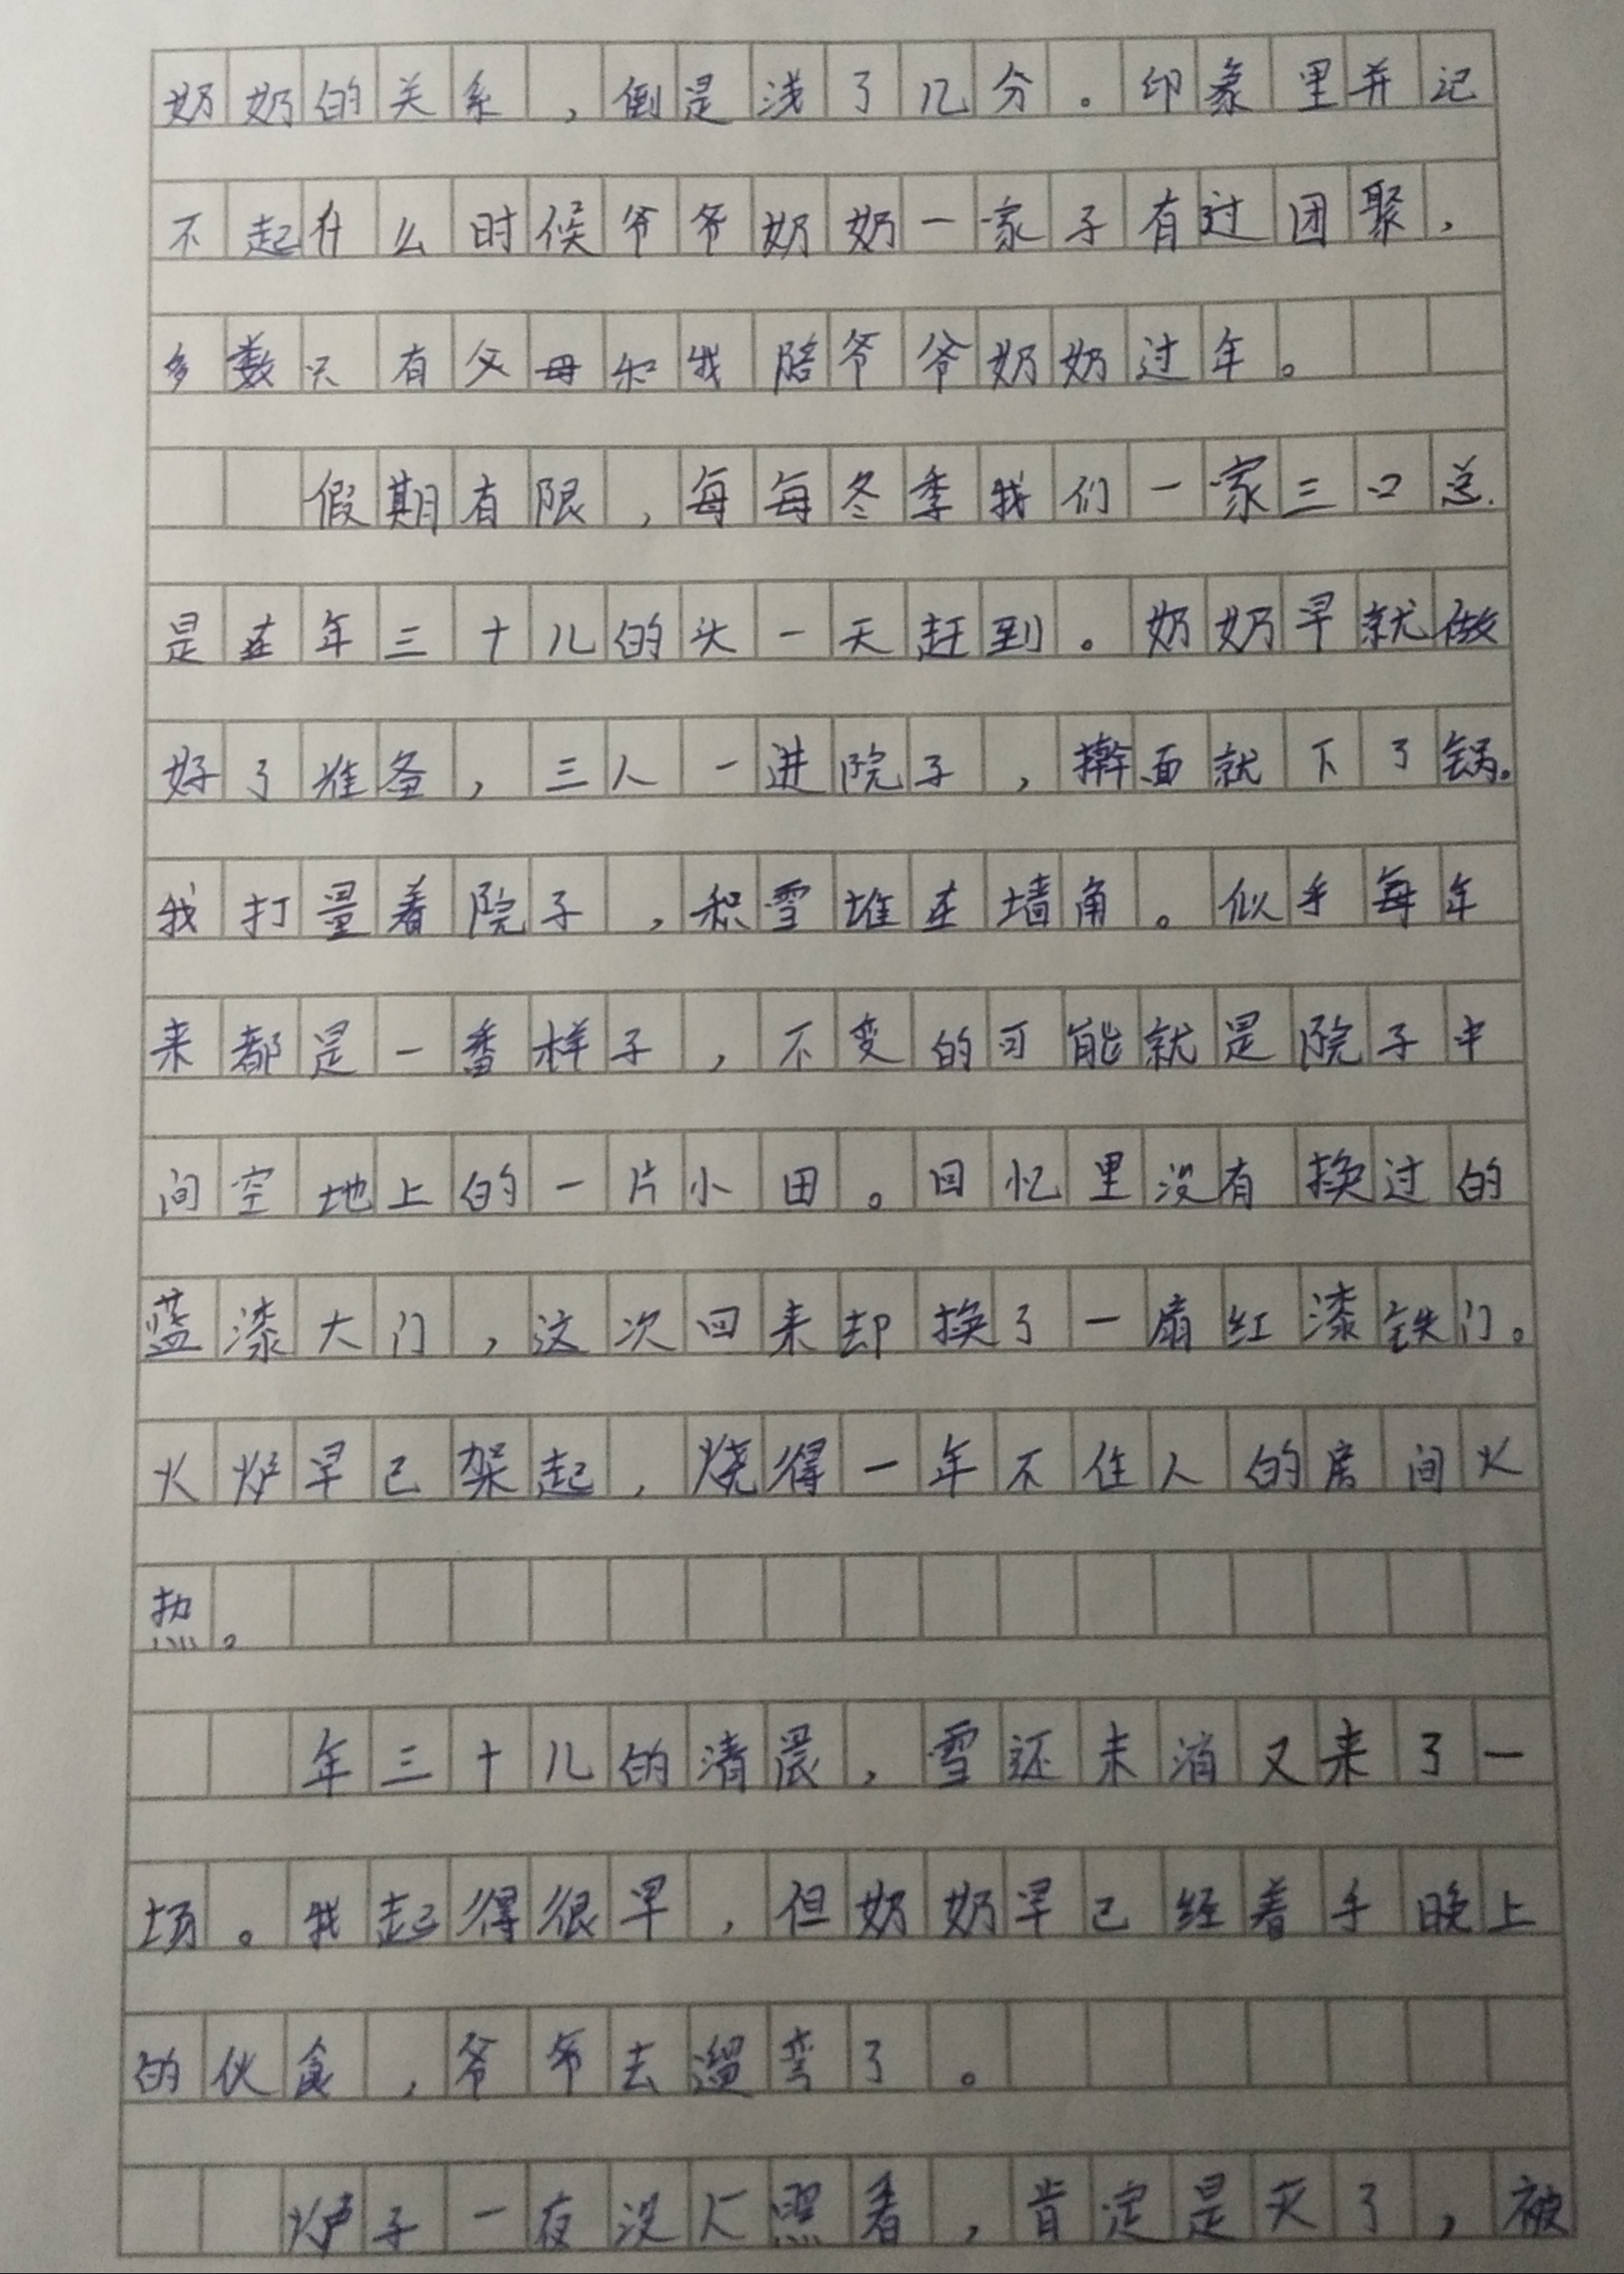 奶奶的关系，倒是浅了几分。印象里并记
不起什么时候爷爷奶奶一家子有过团聚，
多数只有父母和我陪爷爷奶奶过年。
假期有限，每每冬季我们一家三口总
是在年三十儿的头一天赶到。奶奶早就做
好了准备，三人一进院子，擀面就下了锅。
我打量着院子，积雪堆在墙角。似乎每年
来都是一番样子，不变的可能就是院子中
间空地上的一片小田。回忆里没有换过的
蓝漆大门，这次回来却换了一扇红漆铁门。
火炉早已架起，烧得一年不住人的房间火
热。
年三十儿的清晨，雪还未消又来了一
场。我起得很早，但奶奶早已经着手晚上
的伙食，爷爷去遛弯了。
炉子一夜没人照看，肯定是灭了，被